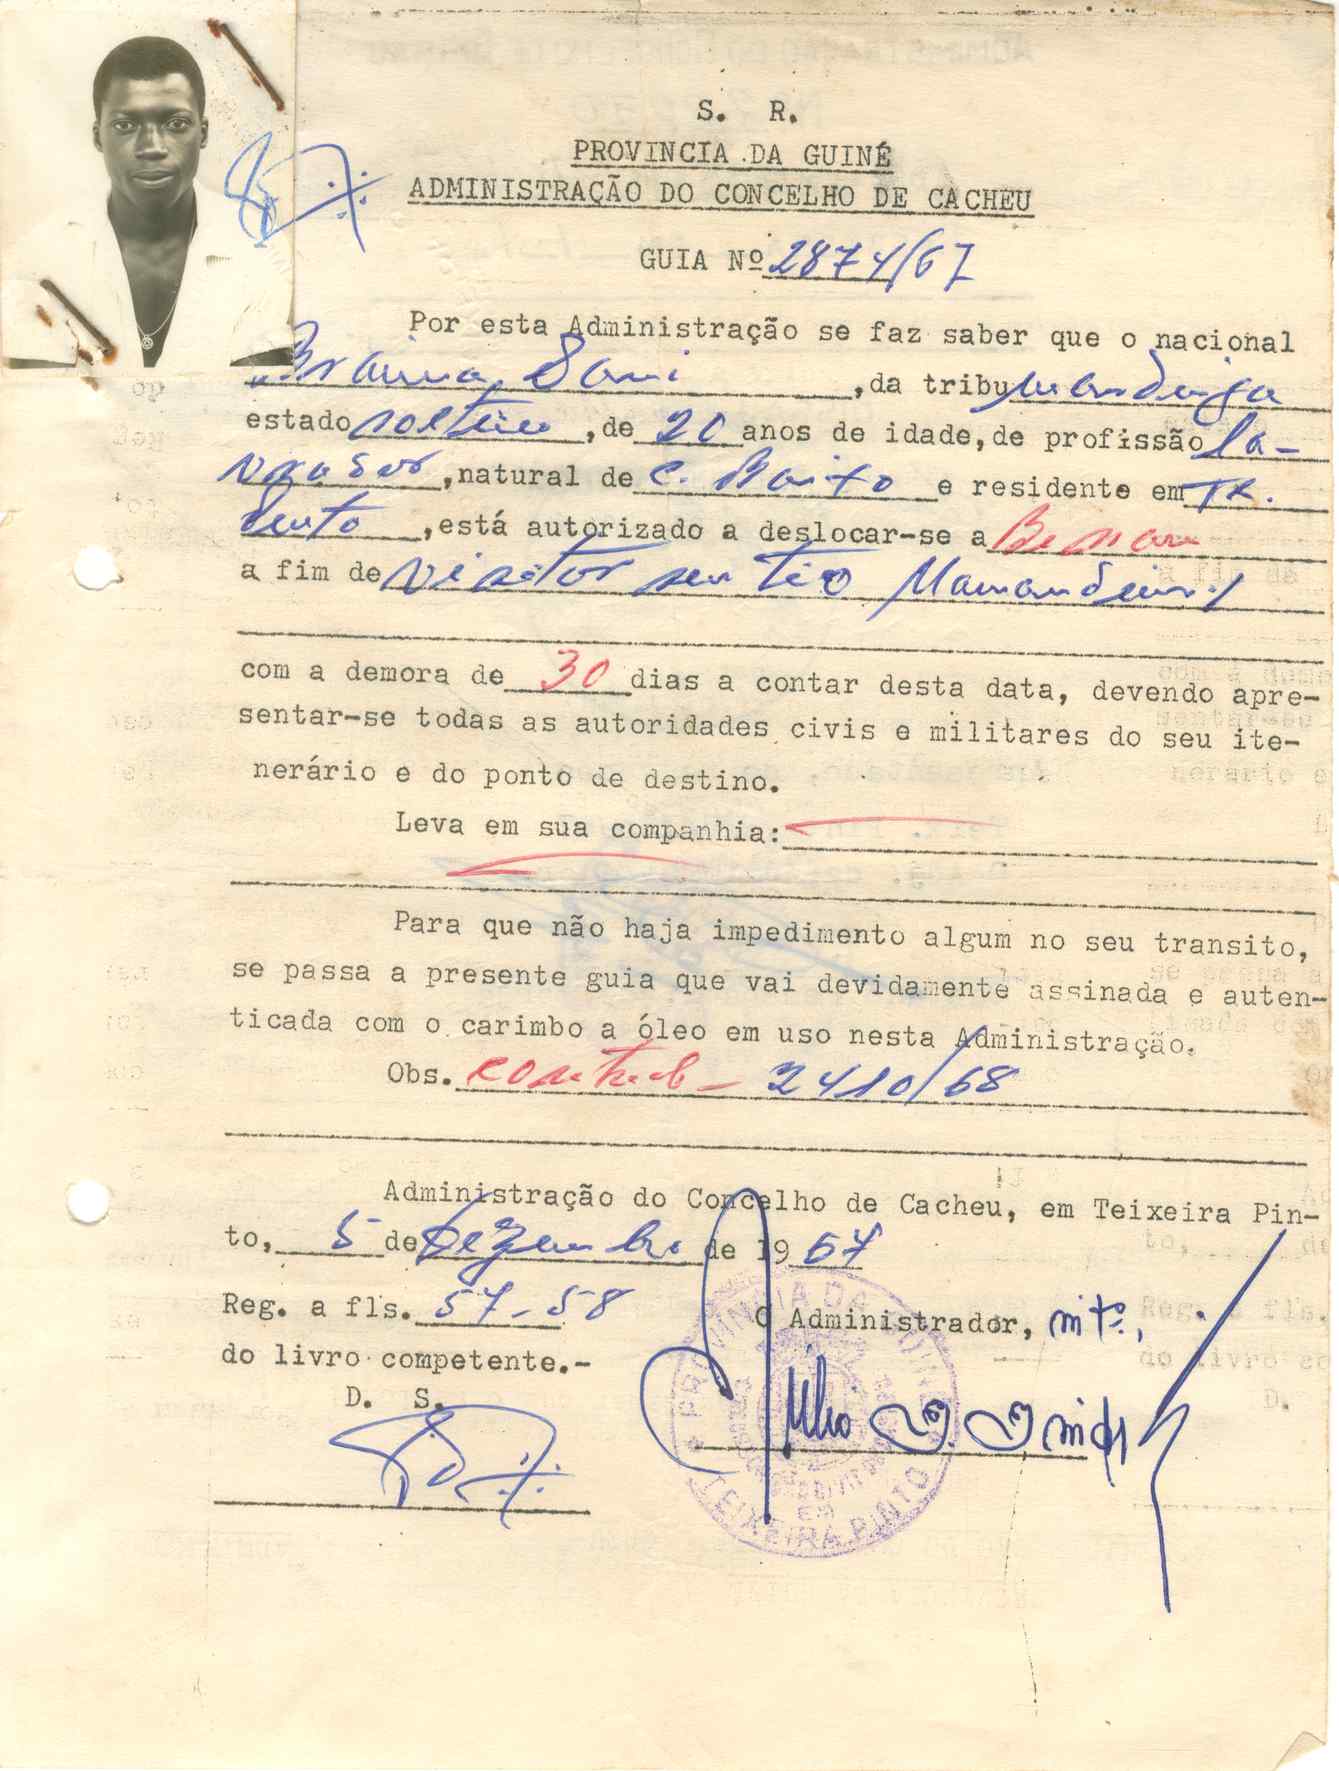 S. R.
PROVINCIA DA GUINÉ
ADMINISTRAÇÃO DO CONCELHO DE CACHEU
GUIA Nº 2874/67
Por esta Administração se faz saber que o nacional
Braima Sani, da tribu mandinga
estado solteiro, de 20 anos de idade, de profissão la-
vrador, natural de C. Baixo e residente em Tx.
Pinto, está autorizado a deslocar-se a Bissau
a fim de visitar seu tio
com a demora de 30 dias a contar desta data, devendo apre-
sentar-se todas as autoridades civis e militares do seu ite-
nerário e do ponto de destino.
Leva em sua companhia:
Para que não haja impedimento algum no seu transito,
se passa a presente guia que vai devidamente assinada e auten-
ticada com o carimbo a óleo em uso nesta Administração.
Obs. 2410/68
Administração do Concelho de Cacheu, em Teixeira Pin-
to, 5 de Dezembro de 1967
Reg. a fls. 57-58
O Administrador, intº.,
do livro competente.-
D. S.
PROVINCIA DA GUINÉ
TEIXEIRA PINTO